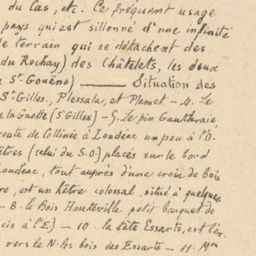 du cas, etc. Ce fréquent usage
pays qui est sillonné d'une infinité
de terrain qui se détachent des
du Rochay) des Châtelets, les deux
St Gouëno) ——— Situation des
St Gilles, Plessala, et Plemet — 4. Le
la Goëlle (St Gilles) — 5. Le pin Gautraie
route de Collinée à Loudéac un peu à l'O.
êtres (celui du S.O.) placés sur le bord
Loudéac, tout auprès d'une croix de bois
est un hêtre colossal, situé à quelques
— 8. le Bois Hauteville petit bouquet de
à l'E) — 10. la tête Essarts, est
vers le N. les bois des Essarts — 11. Mon